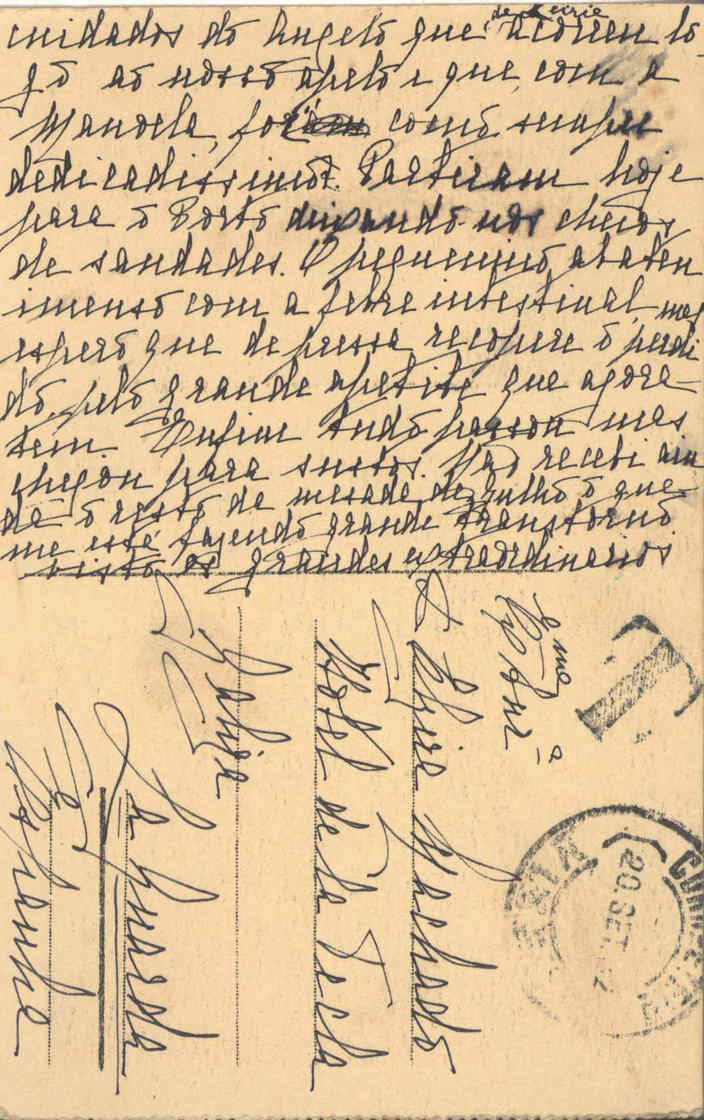 cuidados do Angelo que acorreu lo-
go ao nosso apelo e que, com a
Manoela, foram como sempre
dedicadissimos. Partiram hoje
para o Porto deixando-nos cheios
de saudades. O pequenino abateu
imenso com a febre intestinal mas
espero que depressa recupere o perdi
do, pelo grande apetite que agora
tem. Enfim tudo passou mas
chegou para sustos. Não recebi ain
da o resto da mesada de Julho o que
me está fazendo grande transtorno
visto os grandes extraordinarios
Exma
Snra
D. Elzira Machado
Hotel de la Tecla
Galiza
La Guardia
Espanha
T
CORREIOS
20.SET.